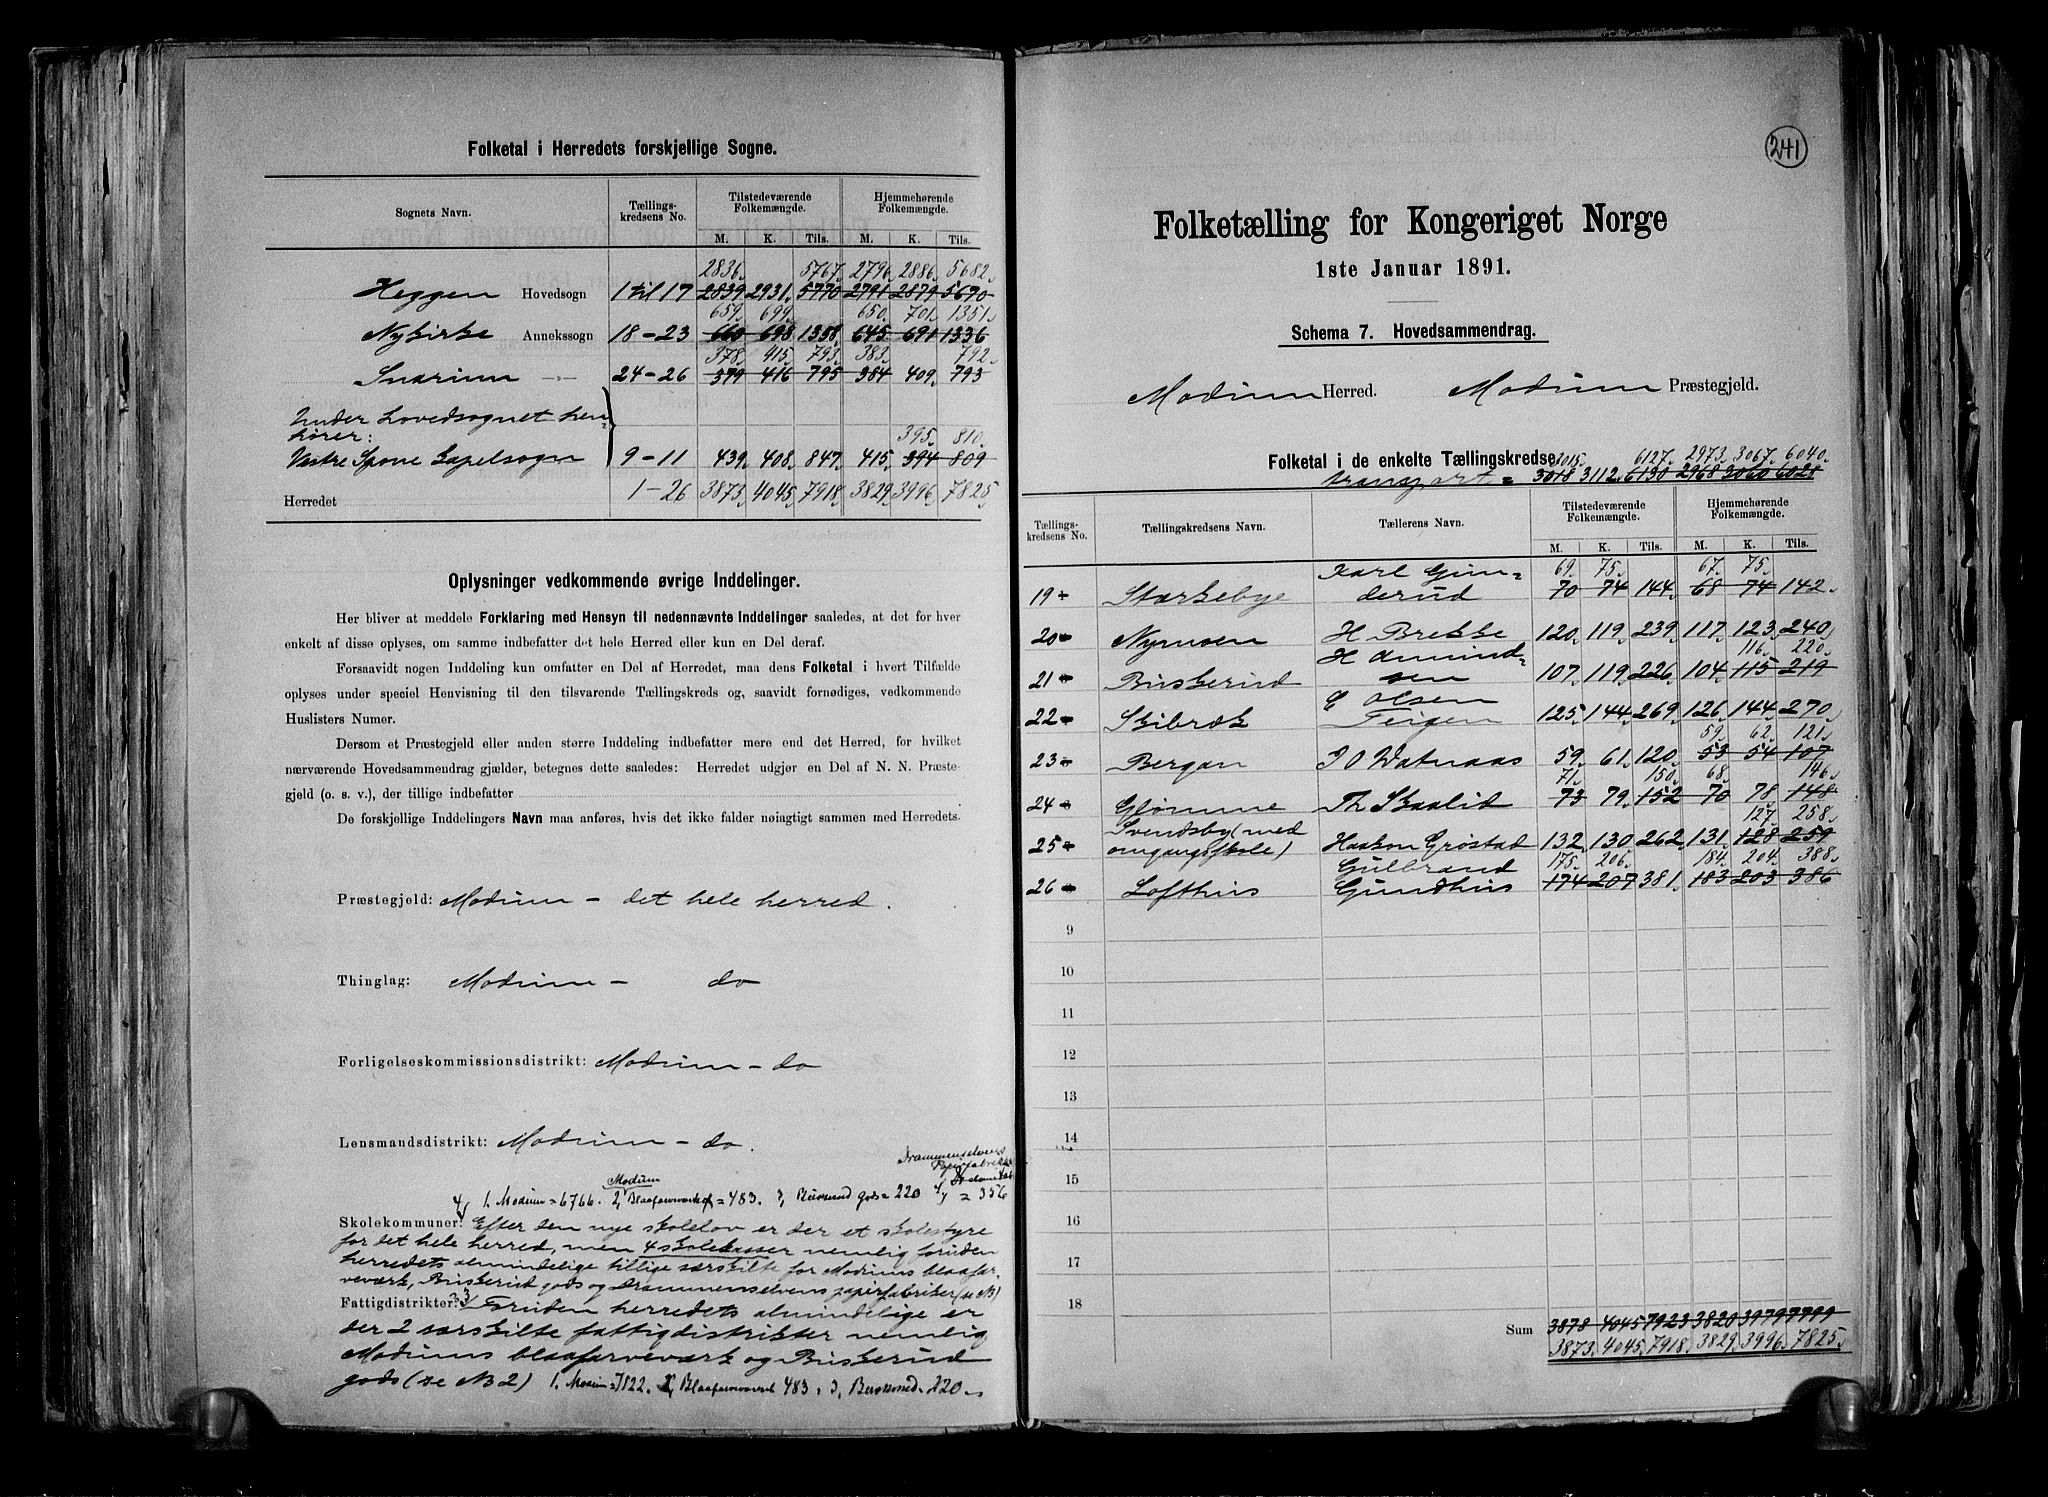 Folketal i Herredets forskjellige Sogne.
Sognets Navn. Tællings- kredsens No. Tilstedeværende Folkemængde. Hjemmehørende Folkemængde.
M. K. Tils. M. K. Tils.
2836. 5767. 2796. 2886. 5682.
Heggen Hovedsogn 1 til 17 2839 2931. 5770 2791 2879 5670
659. 699. 650. 701. 1351.
Nykirke Annekssogn 18 - 23 660 698 1358. 645 691 1336
378. 415. 793. 383. 792.
Snarum — 24 - 26 379 416 795 384 409. 793
Under hovedsognet hen-
hører:
395. 810.
Vestre Spone kapelsogn 9 - 11 439. 408. 847. 415. 394 809
Herredet 1 - 26 3873. 4045. 7918. 3829. 3996. 7825.
Oplysninger vedkommende øvrige Inddelinger.
Her bliver at meddele Forklaring med Hensyn til nedennævnte Inddelinger saaledes, at det for hver
enkelt af disse oplyses, om samme indbefatter det hele Herred eller kun en Del deraf.
Forsaavidt nogen Inddeling kun omfatter en Del af Herredet, maa dens Folketal i hvert Tilfælde
oplyses under speciel Henvisning til den tilsvarende Tællingskreds og, saavidt fornødiges, vedkommende
Huslisters Numer.
Dersom et Præstegjeld eller anden større Inddeling indbefatter mere end det Herred, for hvilket
nærværende Hovedsammendrag gjælder, betegnes dette saaledes: Herredet udgjør en Del af N. N. Præste-
gjeld (o. s. v.), der tillige indbefatter
De forskjellige Inddelingers Navn maa anføres, hvis det ikke falder nøiagtigt sammen med Herredets.
Præstegjeld: Modum - det hele herred.
Thinglag: Modum - do
Forligelseskommissionsdistrikt: Modum - do
Lensmandsdistrikt: Modum - do.
Drammenselvens
Papirfabrikker
Modum
4, 1. Modum = 6766. 2, Blaafarveværk = 483. 3, Buskerud gods = 220 4, = 356
Skolekommuner: Efter den nye skolelov er der et skolestyre
for det hele herred, men 4 skolekasser nemlig foruden
herredets almindelige tillige særskilte for Modums blaafar-
veværk, Buskerud gods og Drammenselvens papirfabriker (se N3)
Fattigdistrikter: 3, Foruden herredets almindelige er
der 2 særskilte fattigdistrikter nemlig
Modums blaafarveværk og Buskerud
gods (se N 2) 1. Modum = 7122. 2, Blaafarveværk 483. 3, Buskerud. 220.
241
Folketælling for Kongeriget Norge
1ste Januar 1891.
Schema 7. Hovedsammendrag.
Modum Herred. Modum Præstegjeld.
Folketal i de enkelte Tællingskredse. 3015. 6127. 2973. 3067. 6040.
transport = 3018 3112. 6130 2968 3060 6028
Tællings- kredsens No. Tællingskredsens Navn. Tællerens Navn. Tilstedeværende Folkemængde. Hjemmehørende Folkemængde.
M. K. Tils. M. K. Tils.
Karl Gun- 69. 75. 67. 75.
19 Stærkebye derud 70 74 144. 68 74 142.
20 Nymoen H Brekke 120. 119. 239. 117. 123. 240.
H Amund- 116. 220.
21 Buskerud sen 107. 119. 226. 104. 115 219
E Olsen
22 Skibræk Teigen 125. 144. 269. 126. 144. 270.
59. 62. 121.
23 Bergan J O Watnaas 59. 61. 120. 53 54 107
71. 150. 68. 146.
24 Glømme Th Skaalid 73 79. 152 70 78. 148
Svendsby (med 127. 258.
25 omgangsskole) Haakon Grøstad 132. 130. 262. 131. 128 259
Gulbrand 175. 206. 184. 204. 388.
26 Lofthus Gundhus 174 207 381. 183 203 386
9
10
11
12
13
14
15
16
17
18
Sum 3878 4045 7923 3820 3979 7799
3873. 4045. 7918. 3829. 3996. 7825.